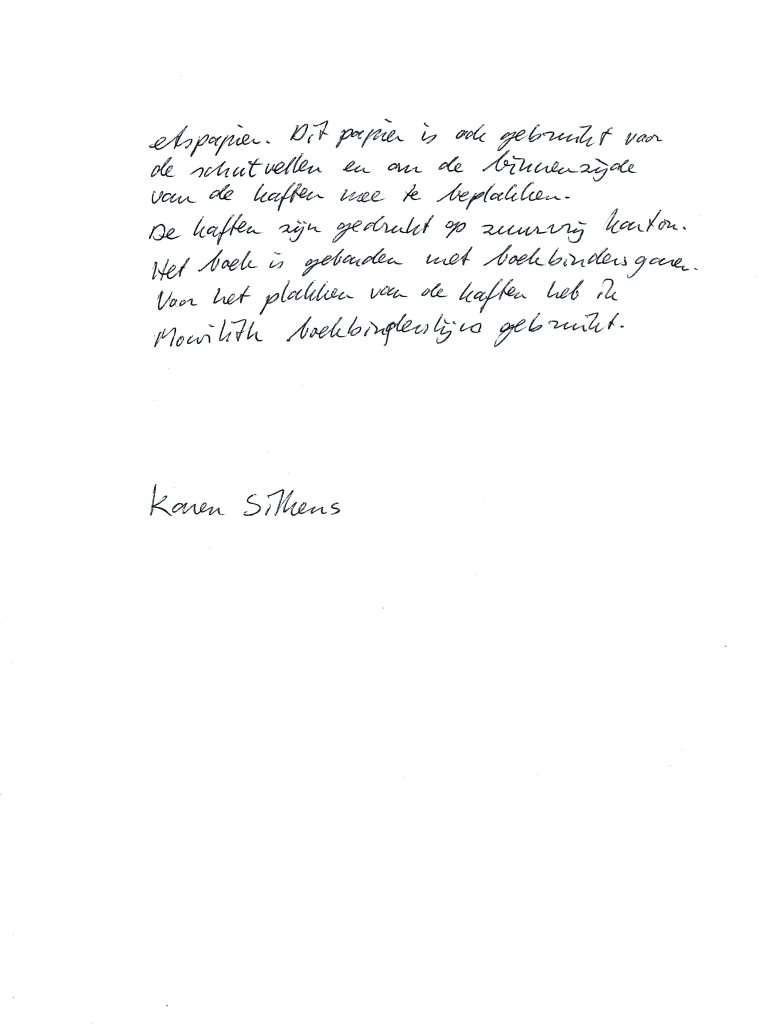 etspapier. Dit papier is ook gebruikt voor
de schutvellen en om de binnenzijde
van de kaften mee te beplakken.
De kaften zijn gedrukt op zuurvrij karton.
Het boek is gebonden met boekbindersgaren.
Voor het plakken van de kaften heb ik
Mowilith boekbinderslijm gebruikt.
Karen Sikkens